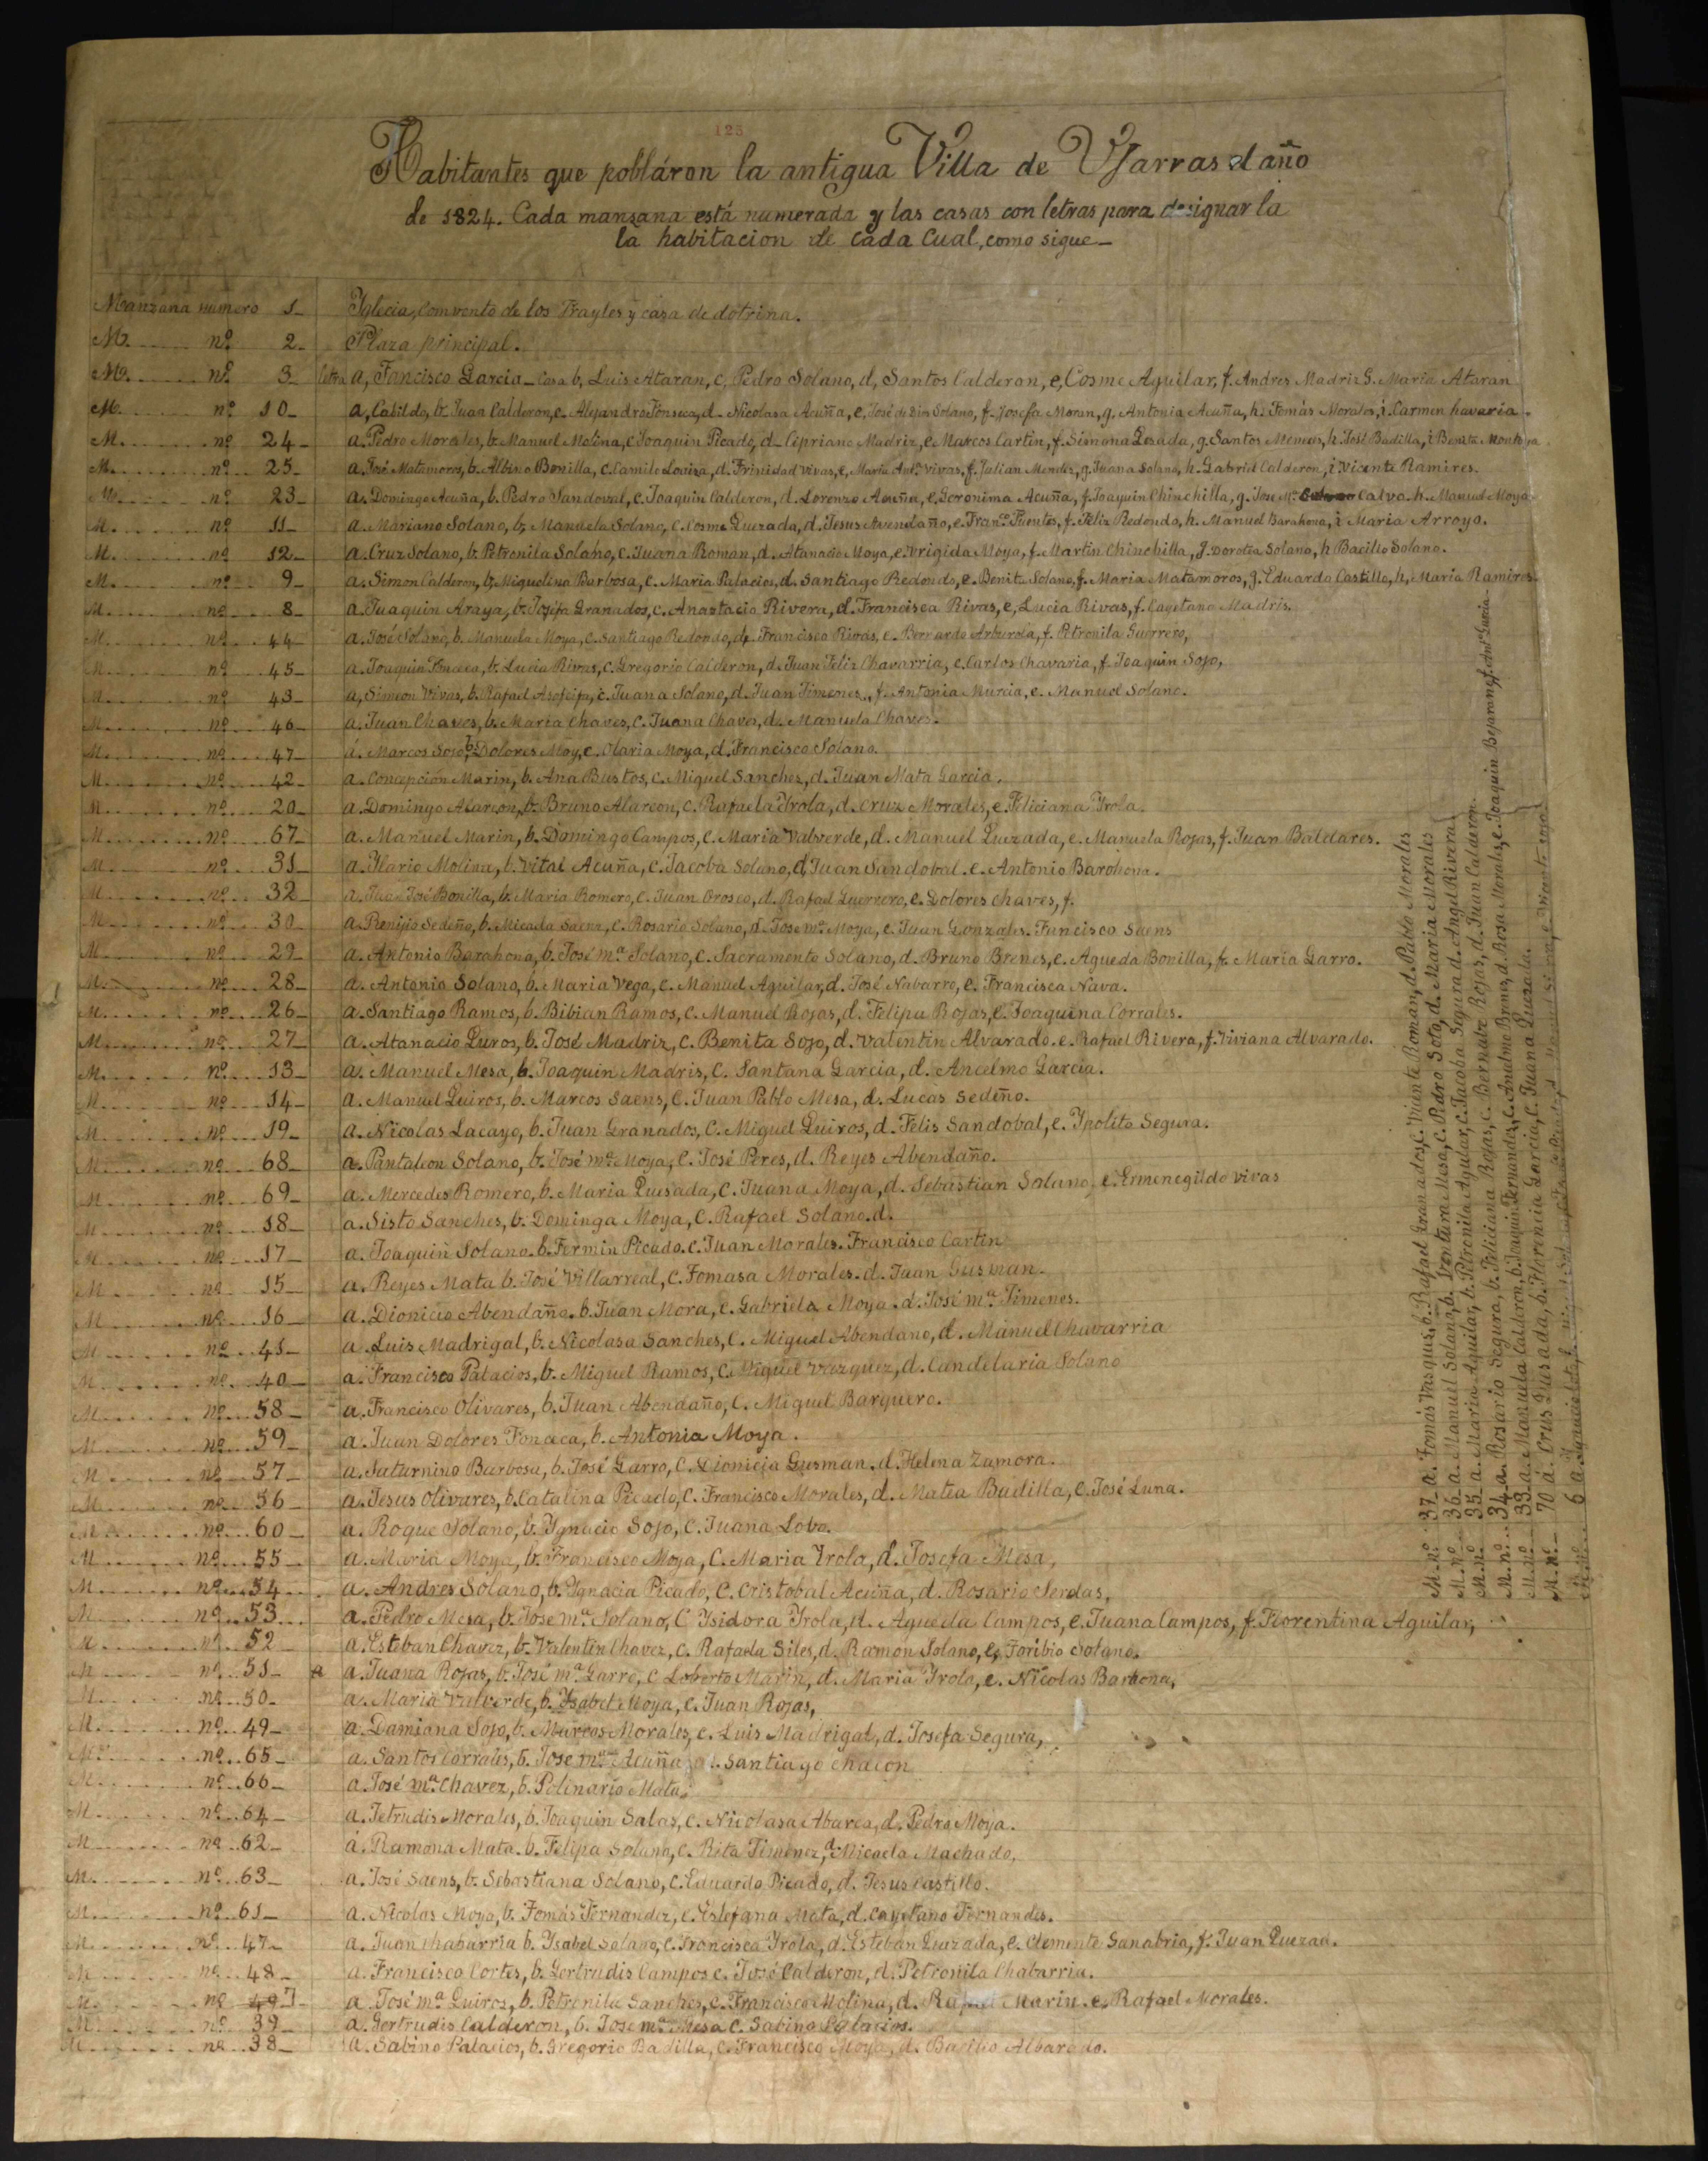 123
Habitantes que pobláron la antigua Villa de Vjarras el año
de 1824. Cada manzana está numerada y las casas con letras para designar la
la habitacion de cada Cual, como sigue_
Manzana número 1_ Yglecia, Comvento de los Frayles y caza de dotrina.
M. nº 2_ Plaza principal.
M. nº 3_ letra a, Fancisco Garcia_Casa b, Luis Ataran, c, Pedro Solano, d, Santos Calderon, e, Cosme Aguilar, f. Andres Madriz G. Maria Ataran
M. nº 10_ a, Casildo, b. Juan Calderon, c. Alejandro Fonseca, d_ Nicolasa Acuña, e, José de Dios Solano, f. Josefa Moran, g. Antonia Acuña, h. Tomás Morales, i. Carmen havaria.
M. nº 24_ a. Pedro Morales, b. Manuel Molina, c Joaquin Picado, d_ Cipriano Madriz, e Marcos Cartin, f. Simona Qesada, g. Santos h. José Badilla, i Benita Montoya.
M. nº 25_ a. José Matamoros, b. Albino Bonilla, c. Camilo Loaiza, d. Trinidad Vivas, e, Maria Antª Vivas, f. Julian Mendez, g. Juana Solano, h. Gabriel Calderon, i Vicente Ramires.
M. nº 23_ a. Domingo Acuña, b. Pedro Sandoval, c. Joaquin Calderon, d. Lorenzo Acuña, e. Geronima Acuña, f. Joaquin Chinchilla, g. Jose Mª Calvo. h. Manuel Moya
M. nº 11_ a. Mariano Solano, b, Manuela Solano, c. Cosme Quezada, d. Jesus Avendaño, e. Franco Fuentes, f. Feliz Redondo, h. Manuel Barahona, i Maria Arroyo.
M. nº 12_ a. Cruz Solano, b. Petronila Solano, c. Juana Roman, d. Atanacio Moya, e. Vrigida Moya, f. Martin Chinchilla, g. Dorotea Solano, h Bacilio Solano.
M. nº 9_ a. Simon Calderon, b. Miquelina Barbosa, c. Maria Palacios, d. Santiago Redondo, e. Benita Solano, f. Maria Matamoros, g. Eduardo Castillo, h, Maria Ramires.
M. nº 8_ a. Juaquin Araya, b. Josefa Granados, c. Anaztacio Rivera, d. Francisca Rivas, e, Lucia Rivas, f. Cayetano Madris.
M. nº 44_ a. José Solano, b. Manuela Moya, c. Santiago Redondo, d. Francisco Rivas, e. Bernardo Arburola, f. Petronila Guerrero,
M. nº 45_ a. Joaquin Fonceca, b. Lucia Rivas, c. Gregorio Calderon, d. Juan Feliz Chavarria, e. Carlos Chavaria, f. Joaquin Sojo,
M. nº 43_ a, Simeon Vivas, b. Rafael Asofeifa, c. Juana Solano, d. Juan Jimenes., f. Antonia Murcia, e. Manuel Solano.
M. nº 46_ a. Juan Chaves, b. Maria Chaves, c. Juana Chaves, d. Manuela Chaves.
M. nº 47_ a. Marcos Sojo, b. Dolores Moy, c. Olaria Moya, d. Francisco Solano.
M. nº 42_ a. Concepcion Marin, b. Ana Bustos, c. Miguel Sanches, d. Juan Mata Garcia.
M. nº 20_ a. Domingo Alarcon, b. Bruno Alarcon, c. Rafaela Yrola, d. Cruz Morales, e. Feliciana Yrola.
M. nº 67_ a. Manuel Marin, b. Domingo Campos, c. Maria Valverde, d. Manuel Quezada, e. Manuela Rojas, f. Juan Baldares.
M. nº 31_ a. Ylario Molina, b. Vital Acuña, c. Jacoba Solano, d, Juan Sandobal. e. Antonio Barohona.
M. nº 32_ a. Juan José Bonilla, b. Maria Romero, c. Juan Orosco, d. Rafael Guerrero, e. Dolores chaves, f.
M. nº 30_ a. Remijio Sedeño, b. Micaela Saens, c. Rosario Solano, d. Jose mª Moya, e. Juan Gonzales. Funcisco Saens
M. nº 29_ a. Antonio Barahona, b. José mª Solano, c. Sacramento Solano, d. Bruno Brenes, e. Agueda Bonilla, f. Maria Garro.
M. nº 28_ a. Antonio Solano, b. Maria Vega, c. Manuel Aguilar, d. José Nabarro, e. Francisca Nava.
M. nº 26_ a. Santiago Ramos, b. Bibian Ramos, c. Manuel Rojas, d. Felipa Rojas, e. Joaquina Corrales.
M. nº 27_ a. Atanacio Quros, b. José Madriz, c. Benita Sojo, d. Valentin Alvarado. e. Rafael Rivera, f. Viviana Alvarado.
M. nº 13_ a. Manuel Mesa, b. Joaquin Madris, c. Santana Garcia, d. Ancelmo Garcia.
M. nº 14_ a. Manuel Quiros, b. Marcos Saens, c. Juan Pablo Mesa, d. Lucas Sedeño.
M. nº 19_ a. Nicolas Lacayo, b. Juan Granados, c. Miguel Quiros, d. Felis Sandobal, e. Ypolito Segura.
M. nº 68_ a. Pantaleon Solano, b. José mª Moya, c. José Peres, d. Reyes Abendaño.
M. nº 69_ a. Mercedes Romero, b. Maria Quesada, c. Juana Moya, d. Sebastian Solano, e. Ermenegildo Vivas
M. nº 18_ a. Sisto Sanches, b. Dominga Moya, c. Rafael Solano. d.
M. nº 17_ a. Joaquin Solano. b. Fermin Picado. c. Juan Morales. Francisco Cartin
M. nº 15_ a. Reyes Mata b. José Villarreal, c. Tomasa Morales. d. Juan Gusman.
M. nº 16_ a. Dionicio Abendaño. b. Juan Mora, c. Gabriela Moya. d. José mª Jimenes.
M. nº 41_ a. Luis Madrigal, b. Nicolasa Sanches, c. Miguel Abendano, d. Manuel Chavarria
M. nº 40_ a. Francisco Palacios, b. Miguel Ramos, c. Miguel Vazquez, d. Candelaria Solano
M. nº 58_ a. Francisco Olivares, b. Juan Abendaño, c. Miguel Barquero.
M. nº 59_ a. Juan Dolores Fonceca, b. Antonia Moya.
M. nº 57_ a. Saturnino Barbosa, b. José Garro, c. Dionicia Gusman. d. Helena Zamora.
M. nº 56_ a. Jesus Olivares, b. Catalina Picado, c. Francisco Morales, d. Matea Badilla, e. José Luna.
M. nº 60_ a. Roque Solano, b. Ygnacio Sojo, c. Juana Lobo.
M. nº 55_ a. Maria Moya, b. Francisco Moya, c. Maria Yrola, d. Josefa Mesa,
M. nº 54 a. Andres Solano, b. Ygnacia Picado, c. Cristobal Acuña, d. Rosario Serdas,
M. nº 53 a. Pedro Mesa, b. Jose mª Solano, c Ysidora Yrola, d. Agueda Campos, e. Juana Campos, f. Florentina Aguilar,
M. nº 52_ a. Esteban Chavez, b. Valentin Chavez, c. Rafaela Siles, d. Ramon Solano, e, Toribio Solano.
M. nº 51_ a a. Juana Rojas, b. José mª Garro, c Loberto Marin, d. Maria Yrola, e. Nicolas Barbona,
M. nº 50_ a. Maria Valverde, b. Ysabel Moya, c. Juan Rojas,
M. nº 49_ a. Damiana Sojo, b. Marcos Morales, c. Luis Madrigal, d. Josefa Segura,
M. nº 65_ a. Santos Corrales, b. Jose mª Acuña Santiago Chacon
M. nº 66_ a. José mª Chavez, b. Polinario Mata.
M. nº 64_ a. Jetrudis Morales, b. Joaquin Salas, c. Nicolasa Abarca, d. Pedro Moya.
M. nº 62_ a. Ramona Mata. b. Felipa Solano, c. Rita Jimenez, d. Micaela Machado,
M. nº 63_ a. José Saens, b. Sebastiana Solano, c. Eduardo Picado, d. Jesus Castillo.
M. nº 61_ a. Nicolas Moya, b. Tomás Fernandez, c. Estefana Mata, d. Cayetano Fernandes.
M. nº 47_ a. Juan Chabarria b. Ysabel Solano, c. Francisca Yrola, d. Esteban Quezada, e. Clemente Sanabria, f. Juan Quezad.
M. nº 48_ a. Francisco Cortes, b. Gertrudis Campos c. José Calderon, d. Petronila Chabarria.
M. nº 7_ a. José mª Quiros, b. Petronila Sanches, c. Francisco Molina, d. Rafael Marin. e. Rafael Morales.
M. nº 39_ a. Gertrudis Calderon, b. Jose mª Mesa c. Sabino Palacios.
M. nº 38_ a. Sabino Palacios, b. Gregorio Badilla, c. Francisco Moya, d. Basilio Albarado.
M. nº 37 a. Tomás Vasques, b. Rafael Granados, c. Vicente Roman, d. Pablo Morales
M. nº 36 a. Manuel Solano, b. Ventura Mesa, c. Pedro Soto, d. Maria Morales
M. nº 35 a. Maria Aguilar, b. Petronila Aguilar, c. Jacoba Segura d. Angel Rivera.
M. nº 34 a. Rosario Segura, b. Feliciana Rojas, c. Bernabe Rojas, d. Juan Calderon.
M. nº 33 a. Manuela Calderon, b. Joaquin Fernandes, c. Anselmo Brenes, d. Rosa Morales, e. Joaquin Bejarano, f. Antº Garcia
M. nº 70 a. Crus Qusada, b. Florencia Garcia, c. Juana Quesada.
M. nº 6 a. Ygnacio